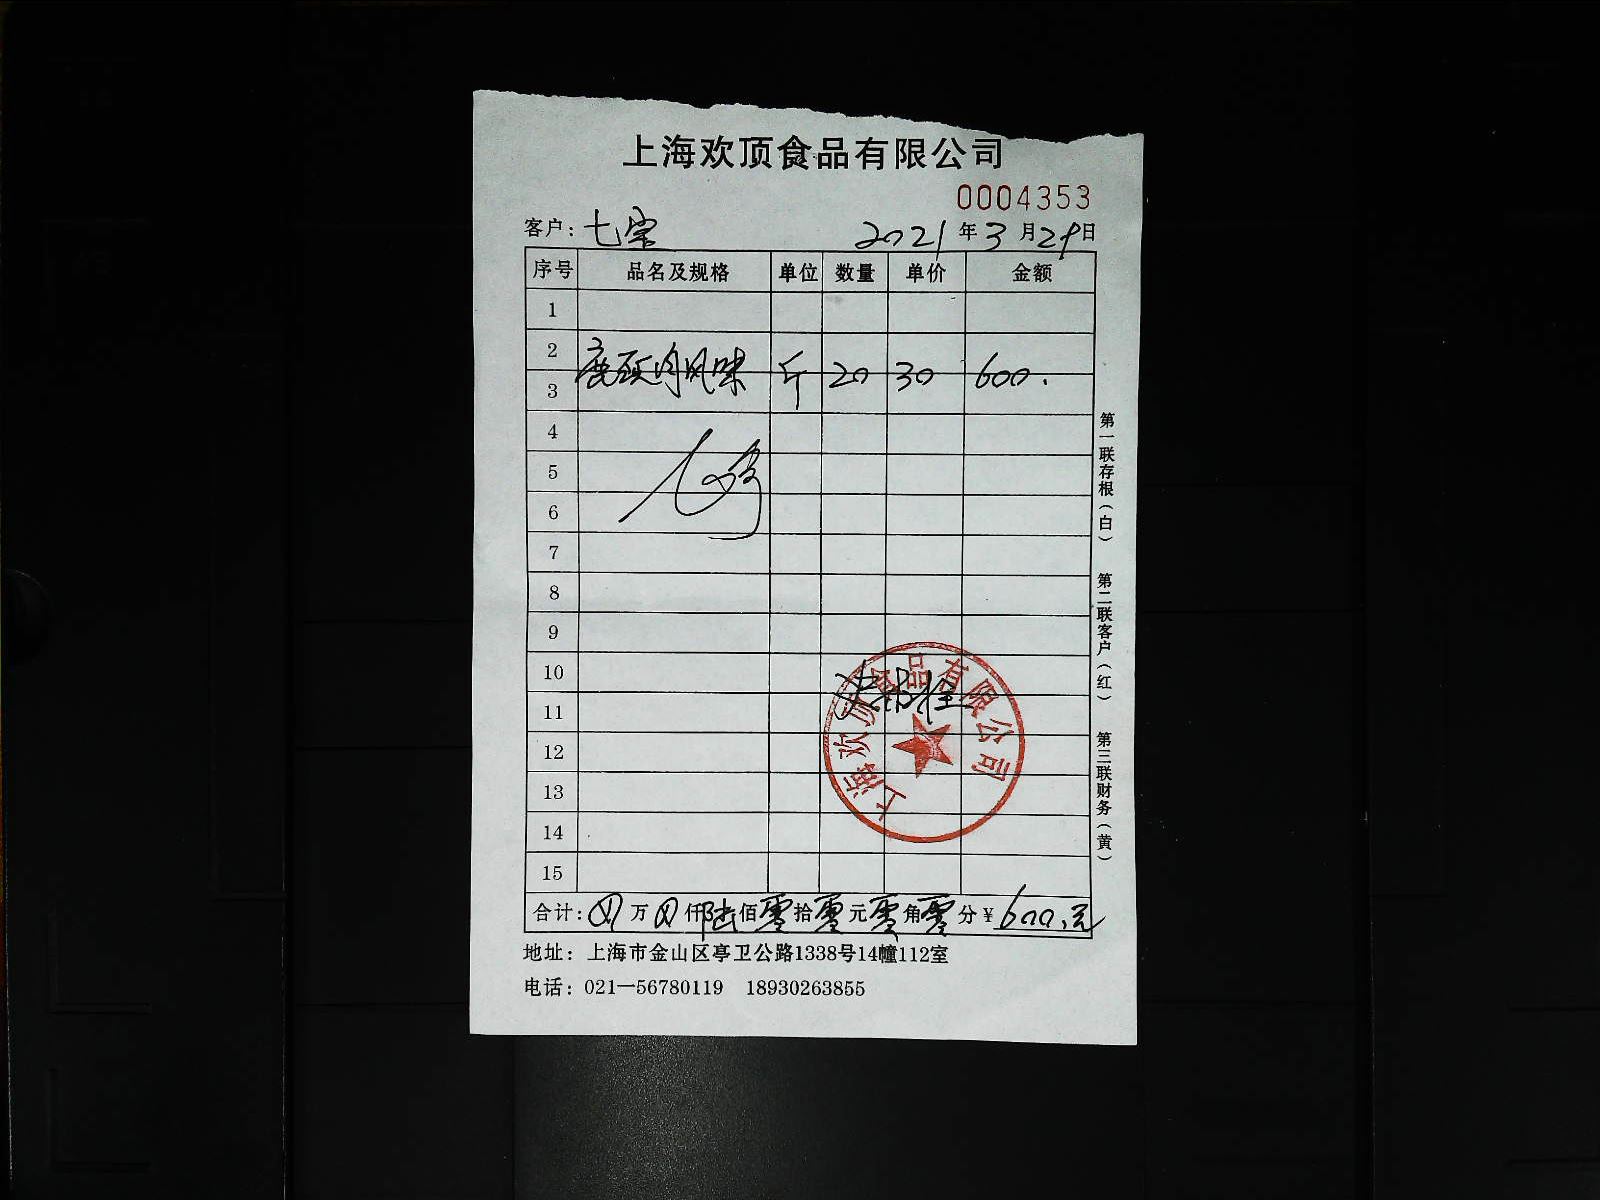 上海欢顶食品有限公司
0004353
客户: 七宗 2021年3月29日
序号 品名及规格 单位 数量 单价 金额
1
2
3 鹿头肉风味 斤 20 30 600.
4
5
6
7
8
9
10
11
12
13
14
15
上海欢顶食品有限公司
合计: 万 仟陆佰零拾零元零角零分¥600.元
地址: 上海市金山区亭卫公路1338号14幢112室
电话: 021—56780119 18930263855
第一联存根(白) 第二联客户(红) 第三联财务(黄)